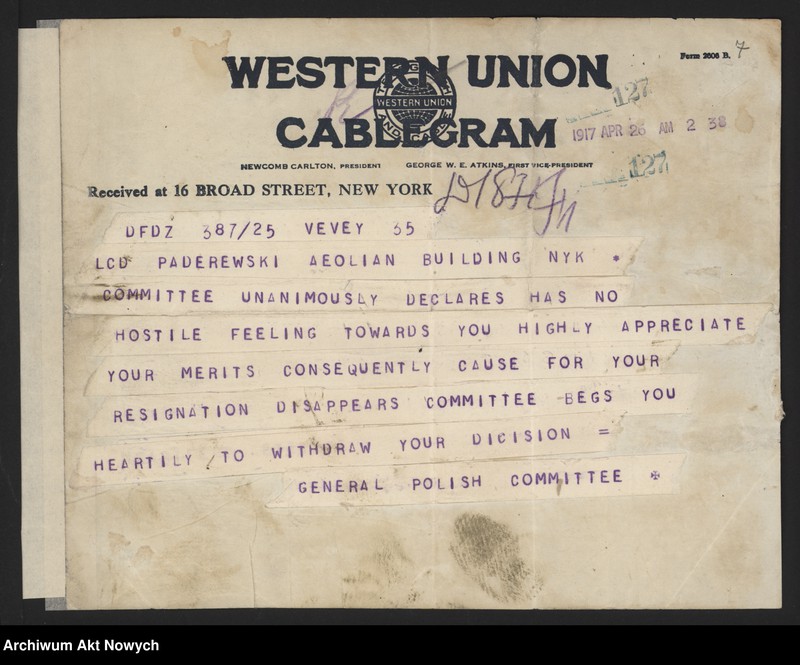 Form 2606 B. 7
WESTERN UNION
WESTERN UNION
CABLEGRAM
127
1917 APR 26 AM 2 38
NEWCOMB CARLTON, PRESIDENT GEORGE W. E. ATKINS, FIRST VICE-PRESIDENT
127
Received at 16 BROAD STREET, NEW YORK
DFDZ 387/25 VEVEY 35
LCD PADEREWSKI AEOLIAN BUILDING NYK *
COMMITTEE UNANIMOUSLY DECLARES HAS NO
HOSTILE FEELING TOWARDS YOU HIGHLY APPRECIATE
YOUR MERITS CONSEQUENTLY CAUSE FOR YOUR
RESIGNATION DISAPPEARS COMMITTEE BEGS YOU
HEARTILY TO WITHDRAW YOUR DICISION =
GENERAL POLISH COMMITTEE *
Archiwum Akt Nowych